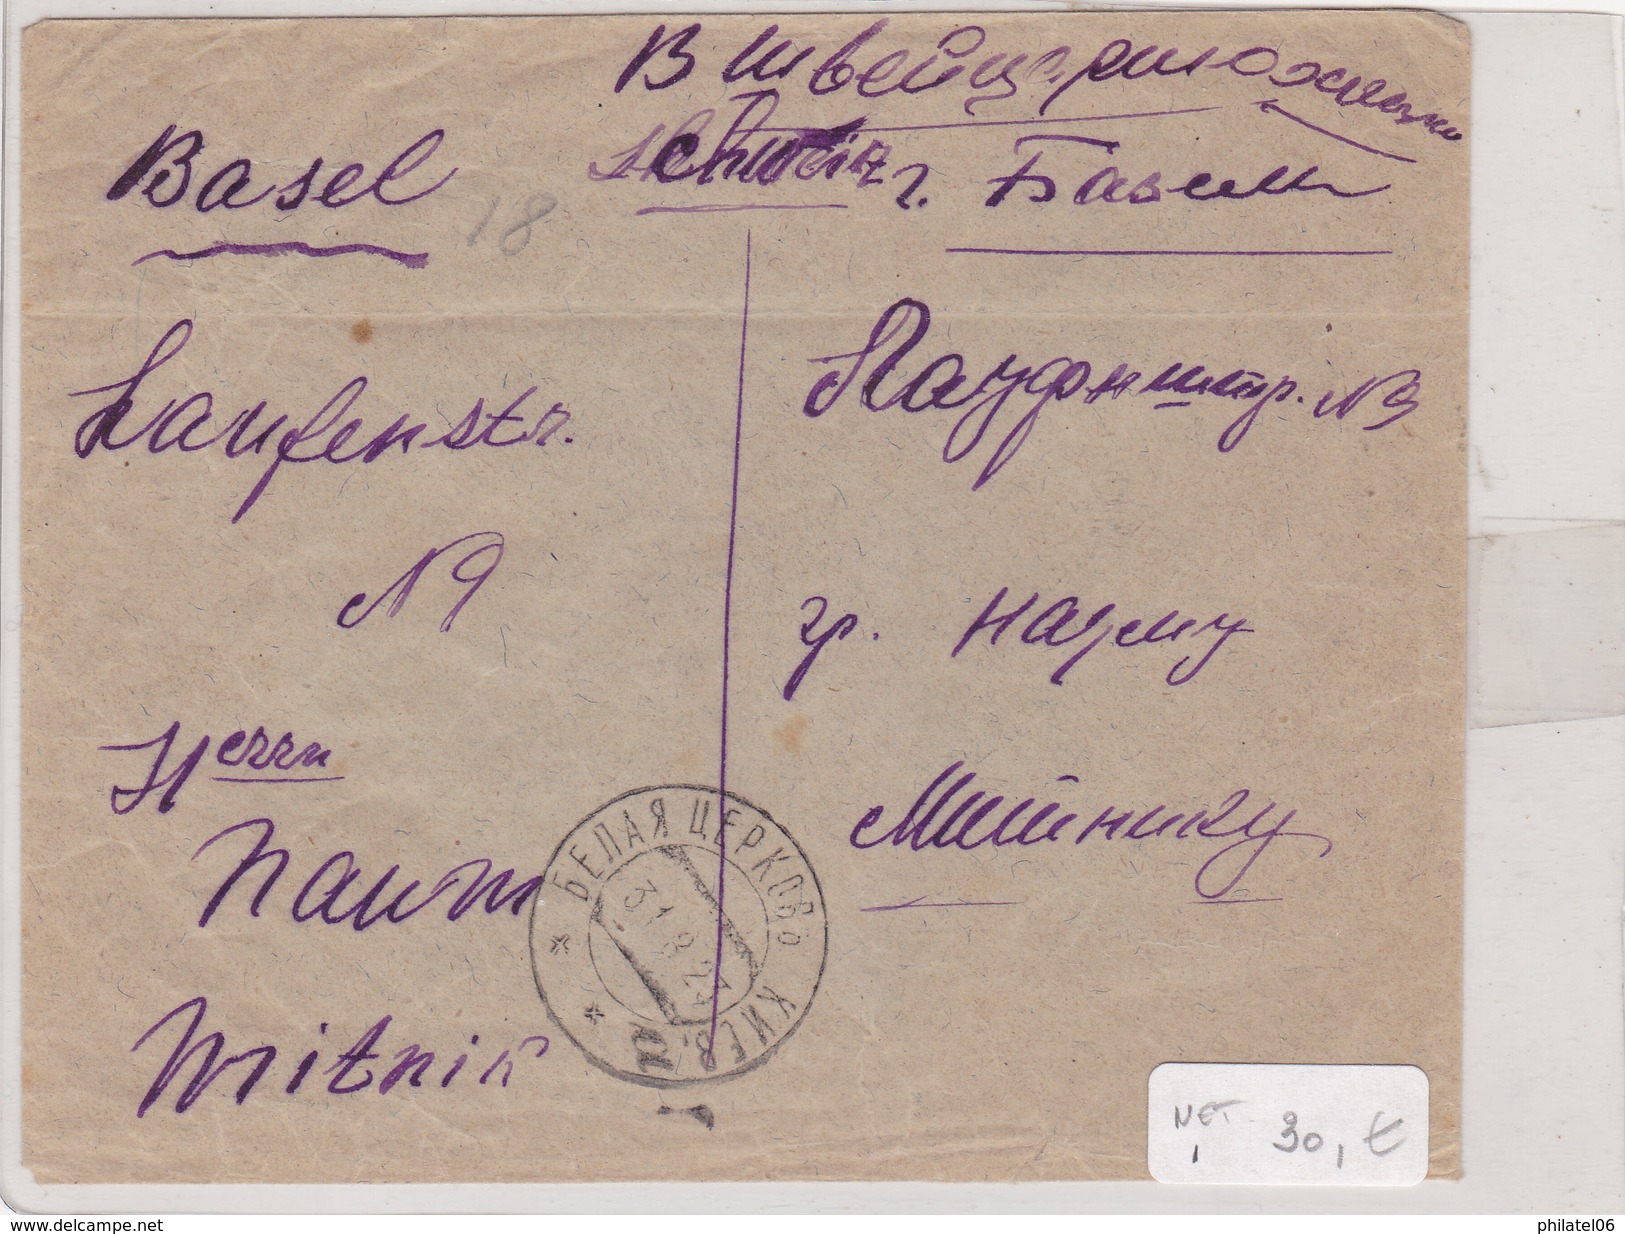 В Швейцарию
Schweiz г. Базель
Basel
18
Laufenstr.
N 9
Herrn
Naum
Mitnik
Лауфенштр. N 9
гр. Науму
Митнику
БЕЛАЯ ЦЕРКОВЬ КИЕВ.
31 8 24
NET 30, €
www.delcampe.net
philatel06